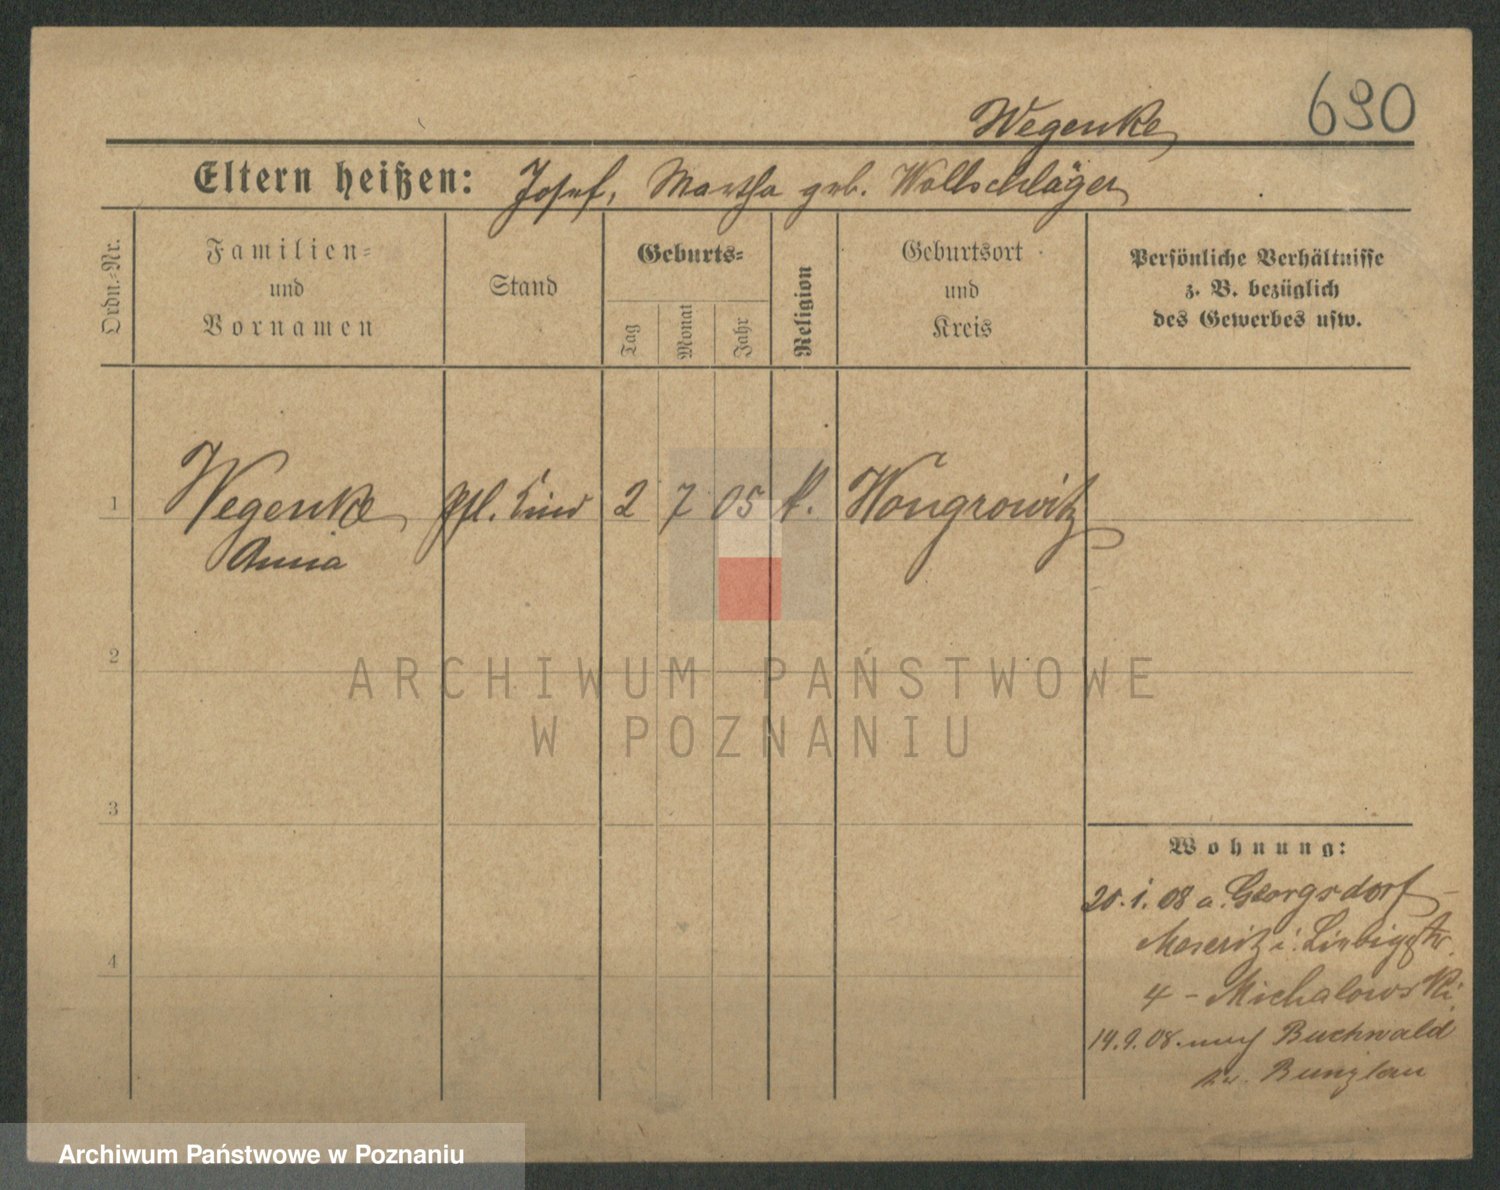 690
Wegenke
Eltern heißen: Josef, Martha geb. Wollschläger
Ordn.-Nr.
Familien- und Vornamen
Stand
Geburts-
Tag
Monat
Jahr
Religion
Geburtsort und Kreis
Persönliche Verhältnisse
z. B. bezüglich
des Gewerbes usw.
1 Wegenke Pfl. Kind 2 7 05 k. Wongrowitz
Anna
2
ARCHIWUM PAŃSTWOWE
W POZNANIU
3
Wohnung:
20.1.08 a. Georgsdorf -
Meseritz i. Liebigstr.
4
4 - Michalowski
19.9.08. nach Buchwald
Kr. Bunzlau
Archiwum Państwowe w Poznaniu